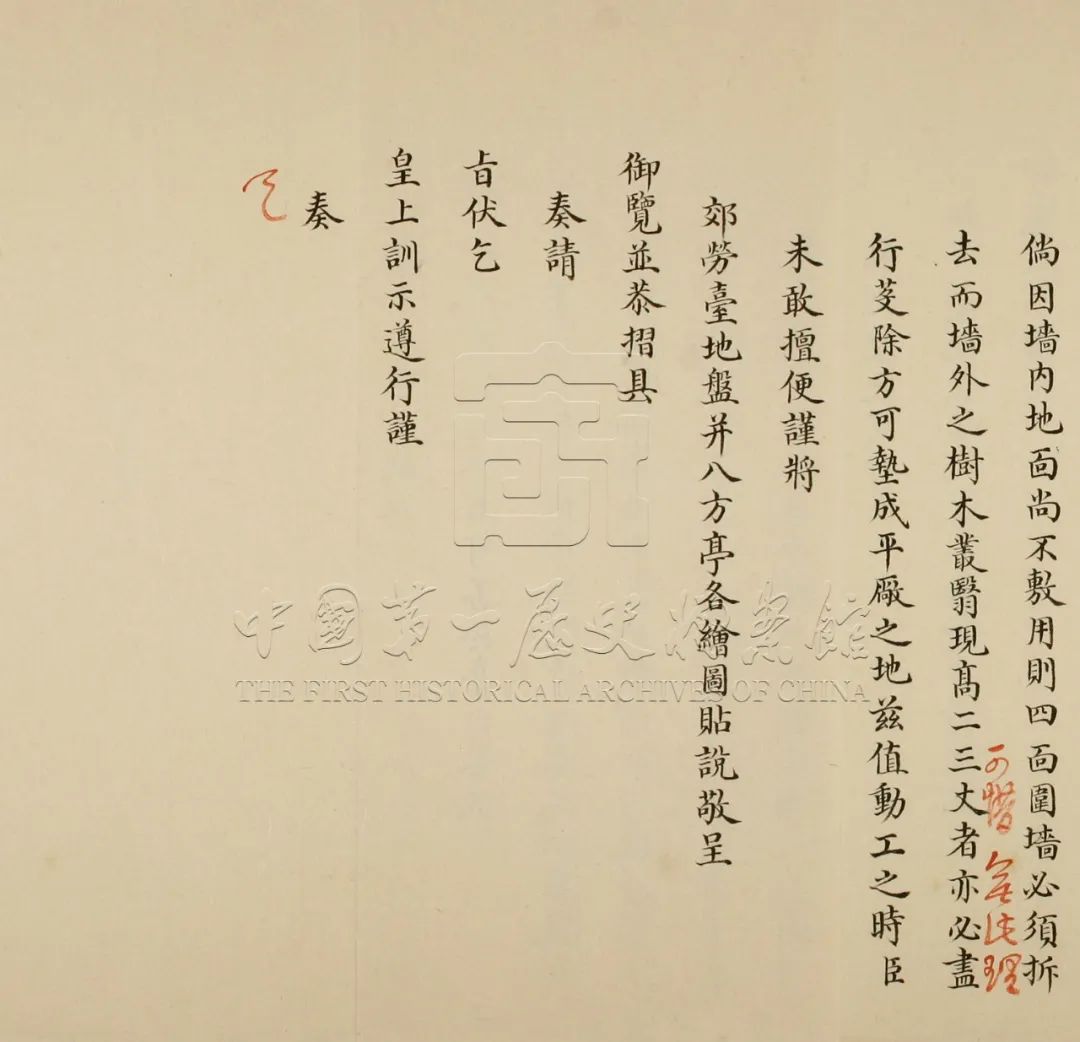 倘因墙内地面尚不敷用則四面圍墙必須拆
可惜 無此理
去而墙外之樹木叢翳現髙二三丈者亦必盡
行芟除方可墊成平厰之地兹值動工之時臣
未敢擅便謹將
郊勞臺地盤并八方亭各繪圖貼說敬呈
御覽並恭摺具
奏請
旨伏乞
皇上訓示遵行謹
奏
覽
中国第一历史档案馆
THE FIRST HISTORICAL ARCHIVES OF CHINA